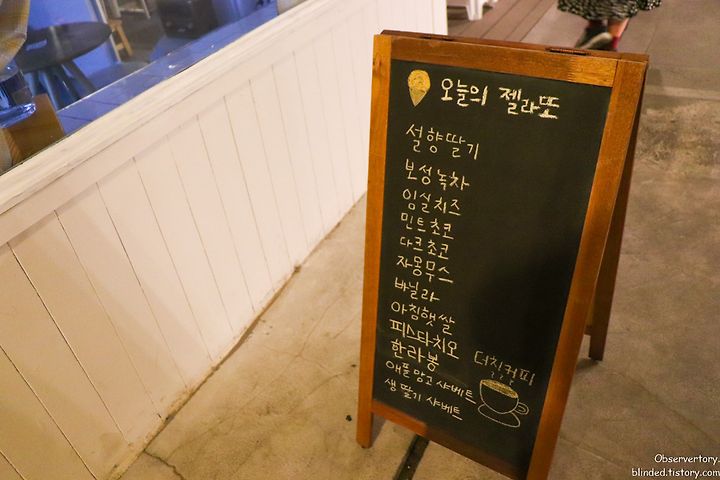 오늘의 젤라또
설향딸기
보성녹차
임실치즈
민트초코
다크초코
자몽무스
바닐라
아침햇쌀
피스타치오
한라봉
애플망고 샤베트
생딸기 샤베트
더치커피
Observertory.
blinded.tistory.com